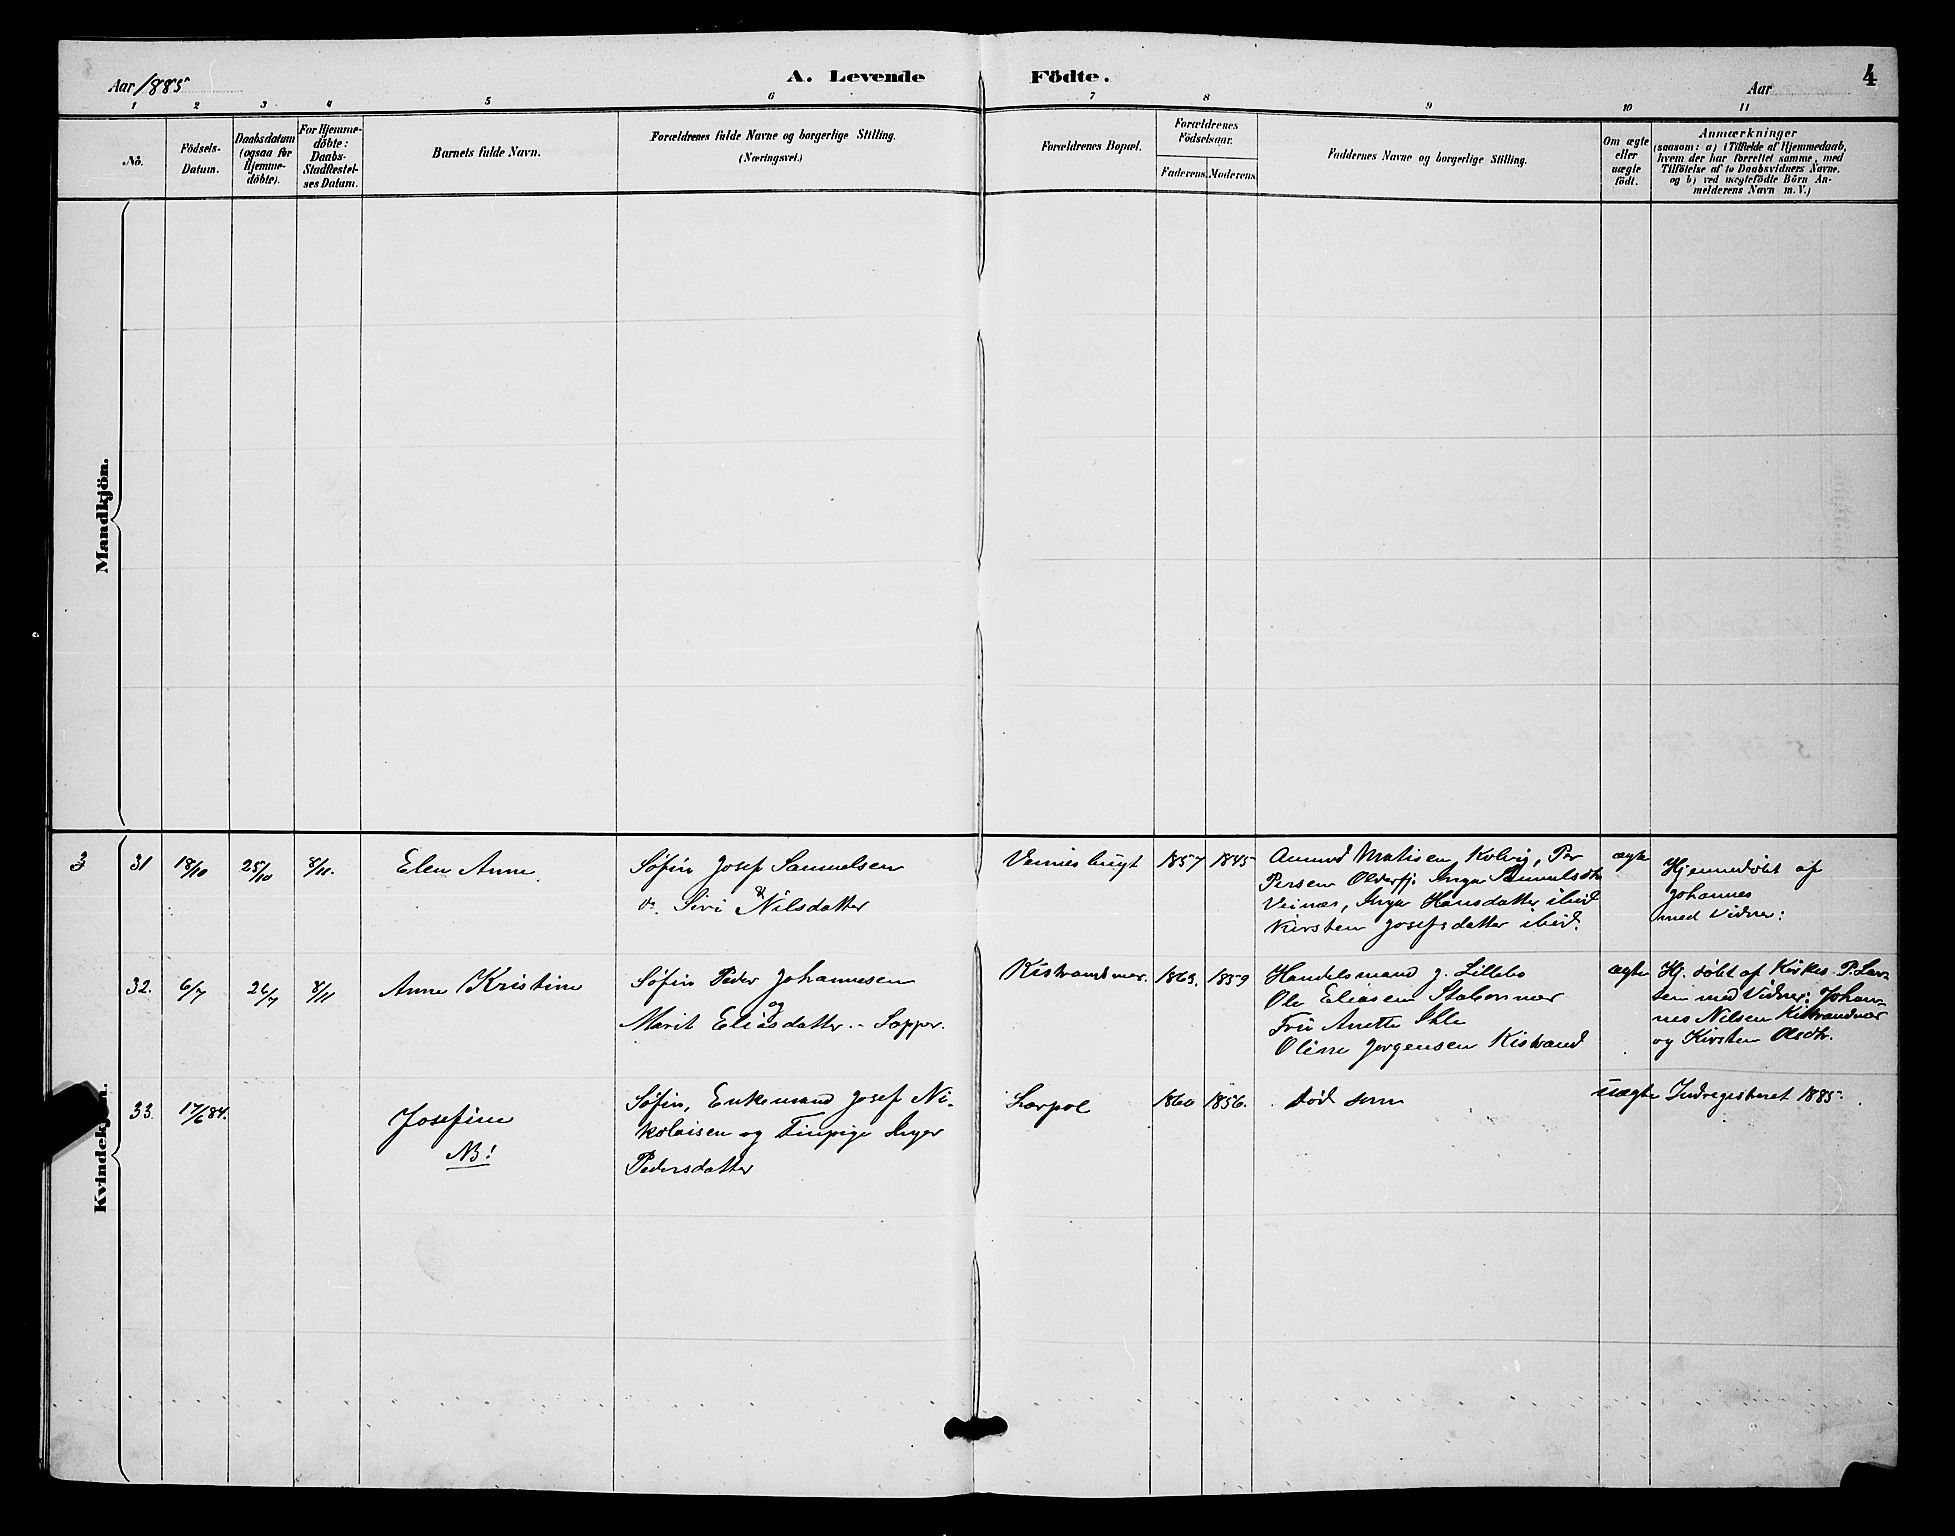 Aar 1885
A. Levende Födte.
Aar
4
1 2 3 4 5 6 7 8 9 10 11
No.
Födsels-
Datum.
Daabsdatum
(ogsaa for
Hjemme-
döbte).
For Hjemme-
döbte:
Daabs-
Stadfæstel-
ses Datum.
Barnets fulde Navn.
Forældrenes fulde Navne og borgerlige Stilling.
(Næringsvei.)
Forældrenes Bopæl.
Forældrenes
Födselsaar.
Faderens. Moderens.
Faddernes Navne og borgerlige Stilling.
Om ægte
eller
uægte
födt.
Anmærkninger
(saasom: a) i Tilfælde af Hjemmedaab,
hvem der har forrettet samme, med
Tilföielse af to Daabsvidners Navne.
og b) ved uægtefödte Börn An-
melderens Navn m. V.)
Mandkjön.
Kvindekjön.
3
31
18/10
25/10
8/11.
Elen Anne.
Søfin Josef Samuelsen
& Siri Nilsdatter
Veinesbugt
1857
1845
Amund Matisen, Kolvig, Per
Persen Olderfj. Inga Samuelsdtr
Veinæs, Inga Hansdatter ibid
Kirsten Josefsdatter ibid.
ægte
Hjemmedøbt af
Johannes
med Vidner:
32.
6/7
26/7
8/11
Anne Kristine
Søfin Peder Johannesen
og
Marit Eliasdatter
Kistrandnær.
1863.
1859
Handelsmand J. Lillebo
Ole Eliasen
Fru Anette Ihle
Oline Jørgensen Kistrand
ægte
Hj. døbt af Kirkes. P. Lar-
sen med Vidner: Johan-
nes Nilsen Kistrandnær
og Kirsten Olsdtr.
33.
17/6 84.
Josefine
NB!
Søfin, Enkemand Josef Ni-
kolaisen og Finpige Inger
Pedersdatter
1860
1856.
Død
uægte
Indregistreret 1885.